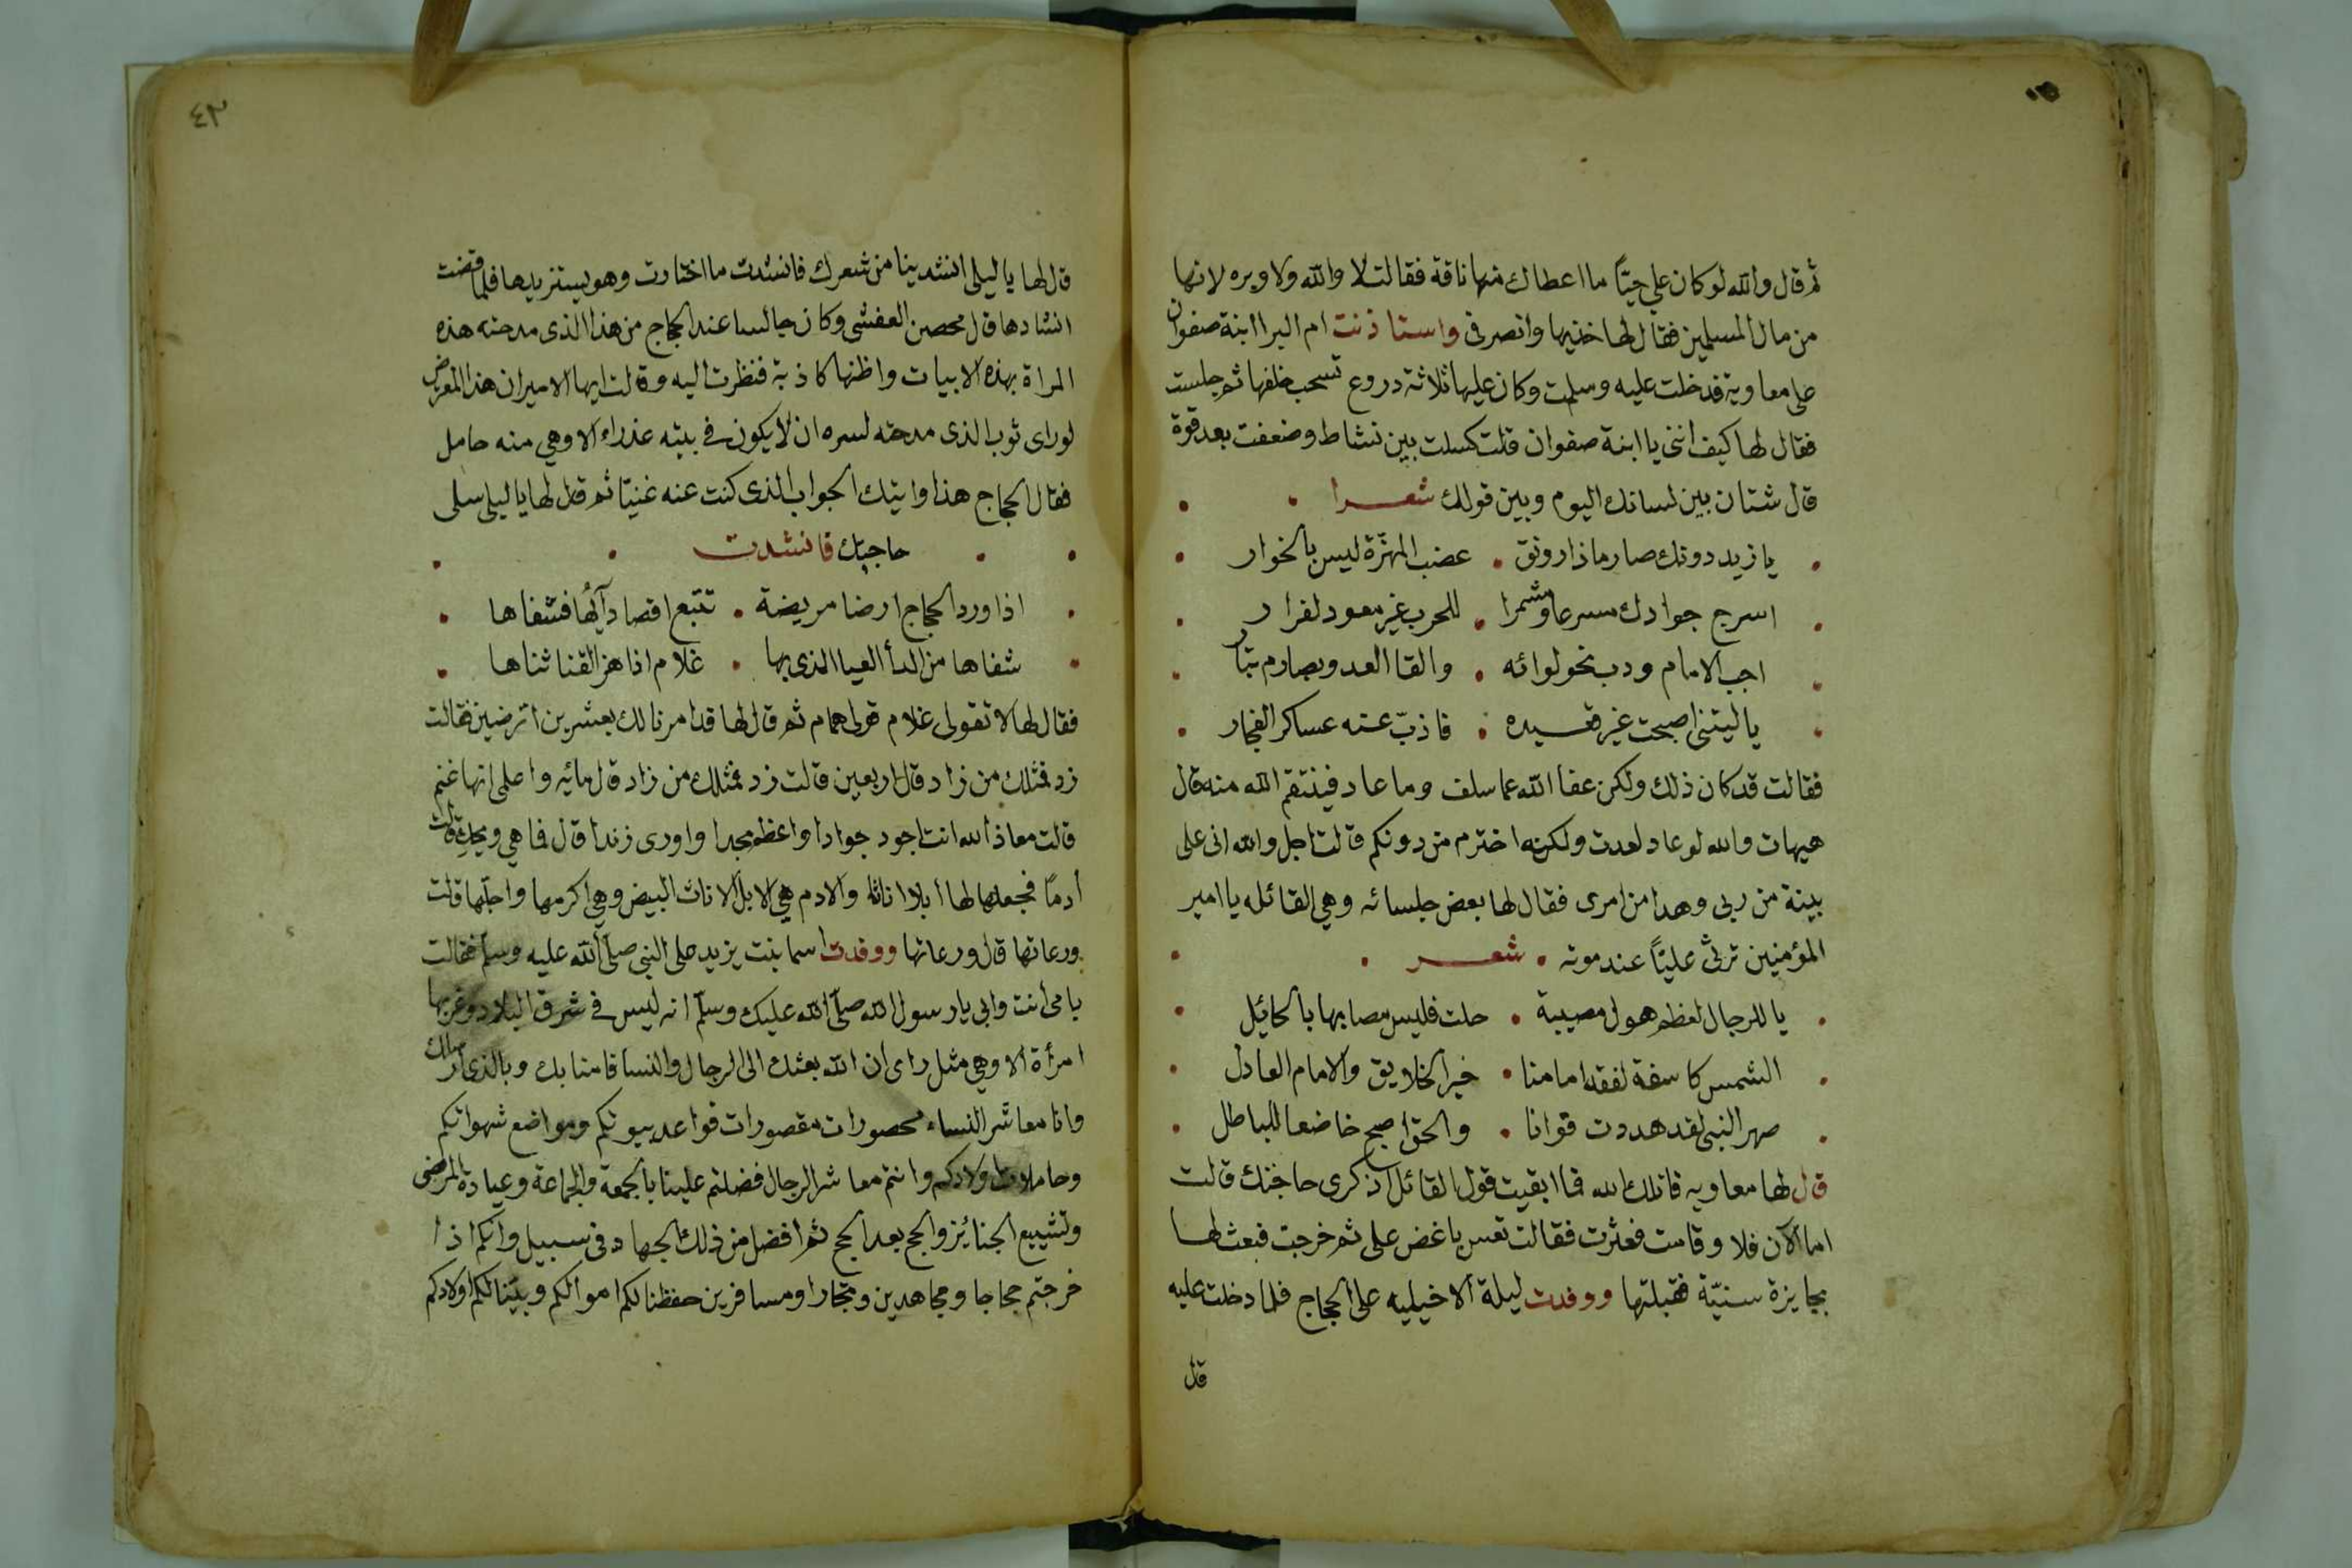 ثم قال والله لو كان علي حيّاً ما اعطاك منها ناقة فقالت لا والله ولا وبره لانها
من مال المسلمين فقال لها خذيها وانصرفى واستاذنت ام البرا ابنة صفوان
على معاوية فدخلت عليه وسلمت وكان عليها ثلاثة دروع تسحب خلفها ثم جلست
فقال لها كيف انتى يا ابنة صفوان قلت كسلت بين نشاط وضعفت بعد قوة
قال شتان بين لسانك اليوم وبين قولك شعرا
يا زيد دونك صارما ذا رونق • عضب المهزّة ليس بالخوار
اسرج جوادك مسرعا ومشمرا • للحرب غير معود لفرار
اجب الامام ودب نحو لوائه • والقا العدو بصارم بتار
يا ليتنى اصبحت غير قعسيده • فاذبّ عنه عساكر الفجار
فقالت قد كان ذلك ولكن عفا الله عما سلف وما عاد فينتقم الله منه قال
هيهات والله لو عاد لعدت ولكنه اخترم من دونكم قالت اجل والله انى على
بينة من ربى وهدا من امرى فقال لها بعض جلسائه وهي القائله يا امير
المؤمنين ترثى عليّاً عند موته • شعر
يا للرجال لعظم هول مصيبة • حلت فليس مصابها بالحائيل
الشمس كاسفة لفقد امامنا • خير الخلايق والامام العادل
صهر النبى لقد هددت قوانا • والحق اصبح خاضعا للباطل
قال لها معاويه قاتلك الله فما ابقيت قول القائل اذكرى حاجتك قالت
اما الآن فلا وقامت فعثرت فقالت تعس باغض على ثم خرجت فبعث لها
بجايزة سنيّة فقبلتها ووفدت ليلة الاخيليه على الحجاج فلما دخلت عليه
قال
٤٣
قال لها يا ليلى انشدينا من شعرك فانشدت ما اختارت وهو يستزيدها فلما قضت
انشادها قال محصن العفشى وكان جالسا عند الحجاج من هذا الذى مدحته هذه
المراة بهذه الابيات واظنها كاذبة فنظرت اليه وقالت ايها الامير ان هذا المعرض
لو راى ثوب الذى مدحته لسره ان لا يكون في بيته عذراء الا وهي منه حامل
فقال الحجاج هذا وابيك الجواب الذى كنت عنه غنيّا ثم قال لها يا ليلى سلى
حاجتك فانشدت
اذا ورد الحجاج ارضا مريضة • تتبع اقصا دآئها فشفاها
شفاها من الدأ العيا الذى بها • غلام اذا هز القنا ثناها
فقال لها لا تقولى غلام قولى همام ثم قال لها قد امرنا لك بعشرين اترضين فقالت
زد فمثلك من زاد قال اربعين قالت زد فمثلك من زاد قال مائه واعلمى انها غنم
قالت معاذ الله انت اجود جوادا واعظم مجدا واورى زندا قال فما هي ويحك قالت
أدماً فجعلها لها أبلا اناثا والادم هي الابل الاناث البيض وهي اكرمها واجلّها قالت
ورعاتها قال ورعاتها ووفدت اسما بنت يزيد على النبى صلى الله عليه وسلم فقالت
بامى أنت وابى يا رسول الله صلّى الله عليك وسلّم انه ليس في شرق البلاد وغربها
امرأة الا وهي مثل راى ان الله بعثك الى الرجال والنسا فامنا بك وبالذى ارسلك
وانا معاشر النساء محصورات مقصورات قواعد بيوتكم ومواضع شهواتكم
وحاملات اولادكم وانتم معاشر الرجال فضلتم علينا بالجمعة والجماعة وعيادة المرضى
وتشييع الجنايز والحج بعد الحج ثم افضل من ذلك الجهاد فى سبيل وانكم اذا
خرجتم حجاجا ومجاهدين وتجارا ومسافرين حفظنا لكم اموالكم وبيّنا لكم اولادكم